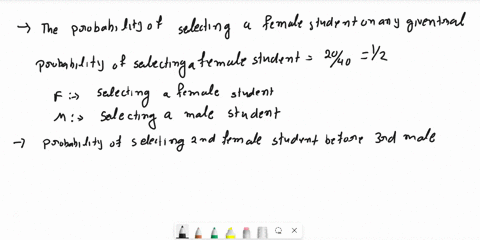 → The probability of selecting a female student on any given trial
probability of selecting a female student = 20/40 = 1/2
F :→ selecting a female student
M :→ selecting a male student
→ probability of selecting 2nd female student before 3rd male